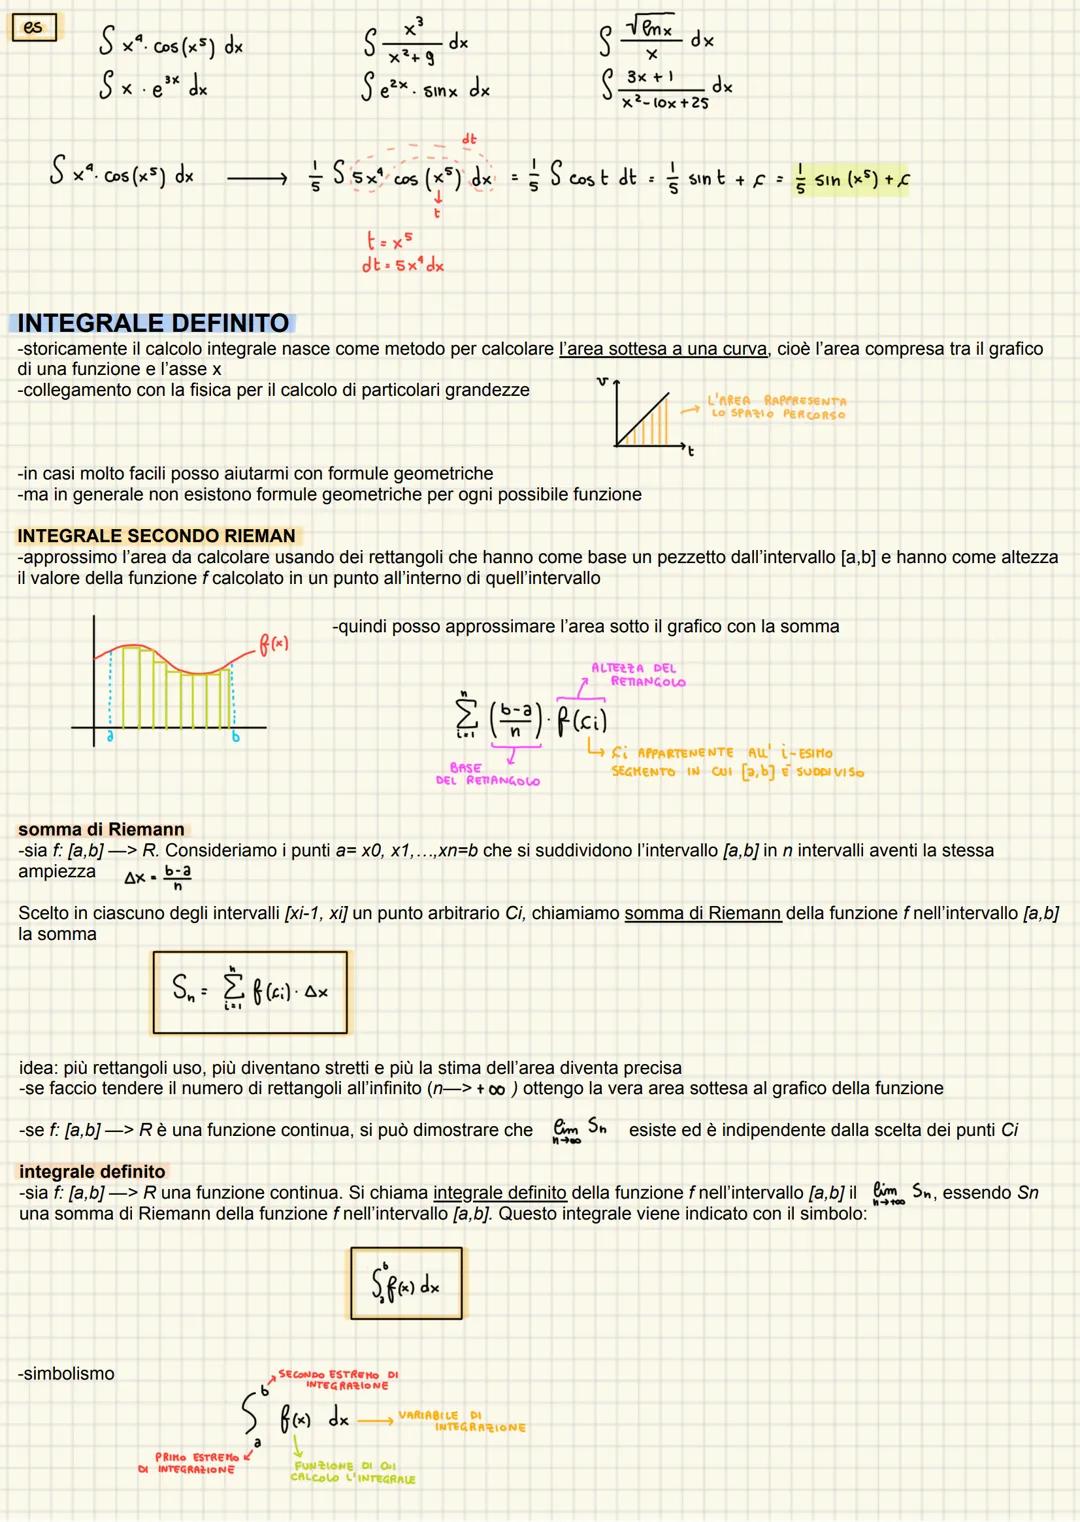 es
∫ x⁴ · cos(x⁵) dx   ∫ x³/(x²+9) dx   ∫ √(ln x)/x dx
∫ x · e³ˣ dx   ∫ e²ˣ · sinx dx   ∫ (3x+1)/(x²-10x+25) dx
dt
∫ x⁴ · cos(x⁵) dx ⟶ 1/5 ∫ 5x⁴ cos (x⁵) dx = 1/5 ∫ cost dt = 1/5 sint + c = 1/5 sin (x⁵) + c
↓
t
t = x⁵
dt = 5x⁴ dx
INTEGRALE DEFINITO
-storicamente il calcolo integrale nasce come metodo per calcolare l'area sottesa a una curva, cioè l'area compresa tra il grafico
di una funzione e l'asse x
-collegamento con la fisica per il calcolo di particolari grandezze
v
L'AREA RAPPRESENTA
LO SPAZIO PERCORSO
t
-in casi molto facili posso aiutarmi con formule geometriche
-ma in generale non esistono formule geometriche per ogni possibile funzione
INTEGRALE SECONDO RIEMAN
-approssimo l'area da calcolare usando dei rettangoli che hanno come base un pezzetto dall'intervallo [a,b] e hanno come altezza
il valore della funzione f calcolato in un punto all'interno di quell'intervallo
-quindi posso approssimare l'area sotto il grafico con la somma
f(x)
a b
ALTEZZA DEL
RETTANGOLO
n
Σ ((b-a)/n) · f(ci)
i=1
BASE
DEL RETTANGOLO
ci APPARTENENTE ALL' i-ESIMO
SEGMENTO IN CUI [a,b] È SUDDIVISO
somma di Riemann
-sia f: [a,b] —> R. Consideriamo i punti a= x0, x1,…,xn=b che si suddividono l'intervallo [a,b] in n intervalli aventi la stessa
ampiezza Δx = (b-a)/n
Scelto in ciascuno degli intervalli [xi-1, xi] un punto arbitrario Ci, chiamiamo somma di Riemann della funzione f nell'intervallo [a,b]
la somma
n
Sn = Σ f(ci) · Δx
i=1
idea: più rettangoli uso, più diventano stretti e più la stima dell'area diventa precisa
-se faccio tendere il numero di rettangoli all'infinito (n—> +∞ ) ottengo la vera area sottesa al grafico della funzione
-se f: [a,b] —> R è una funzione continua, si può dimostrare che lim n→∞ Sn esiste ed è indipendente dalla scelta dei punti Ci
integrale definito
-sia f: [a,b] —> R una funzione continua. Si chiama integrale definito della funzione f nell'intervallo [a,b] il lim n→+∞ Sn, essendo Sn
una somma di Riemann della funzione f nell'intervallo [a,b]. Questo integrale viene indicato con il simbolo:
∫ₐᵇ f(x) dx
-simbolismo
SECONDO ESTREMO DI
INTEGRAZIONE
b
∫ f(x) dx ⟶ VARIABILE DI
INTEGRAZIONE
a
PRIMO ESTREMO
DI INTEGRAZIONE
FUNZIONE DI CUI
CALCOLO L'INTEGRALE